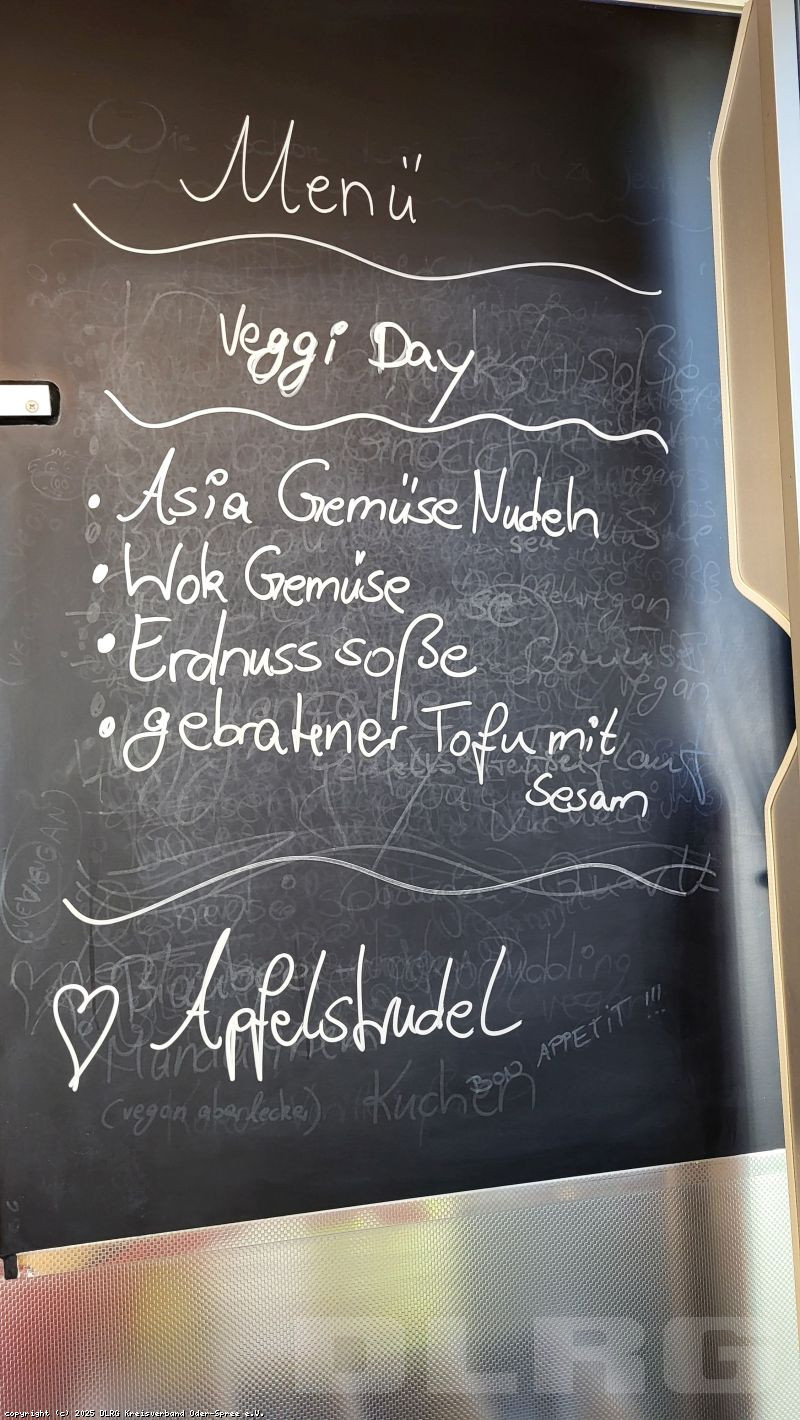 Menü
Veggi Day
• Asia Gemüse Nudeln
• Wok Gemüse
• Erdnuss soße
• gebratener Tofu mit
Sesam
♡ Apfelstrudel
BON APPETIT!!!
Kuchen
(vegan aber lecker)
DLRG
copyright (c) 2025 DLRG Kreisverband Oder-Spree e.V.